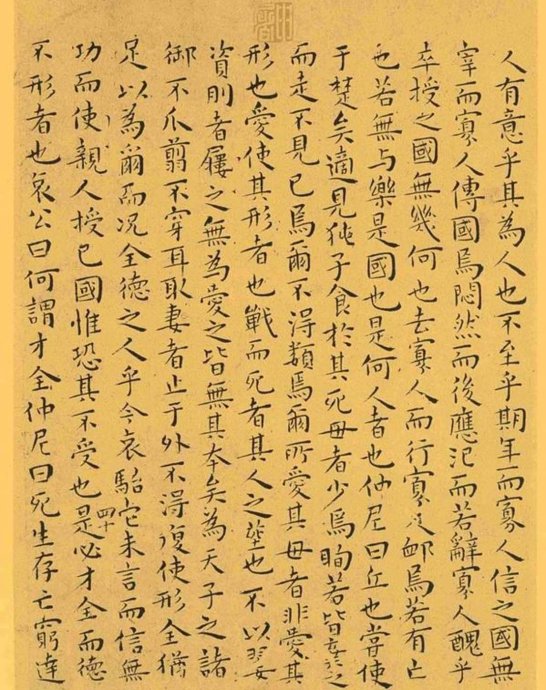 人有意乎其為人也不至乎期年而寡人信之國無
宰而寡人傳國焉悶然而後應氾而若辭寡人醜乎
卒授之國無幾何也去寡人而行寡人卹焉若有亡
也若無与樂是國也是何人者也仲尼曰丘也嘗使
于楚矣適見㹠子食於其死母者少焉眴若皆棄之
而走不見已焉爾不得類焉爾所愛其母者非愛其
形也愛使其形者也戰而死者其人之塟也不以翣
資刖者屨之無為愛之皆無其本矣為天子之諸
御不爪翦不穿耳取妻者止于外不得復使形全猶
足以為爾而况全德之人乎今哀駘它未言而信無
四十
功而使親人授已國惟恐其不受也是必才全而德
不形者也哀公曰何謂才全仲尼曰死生存亡窮達